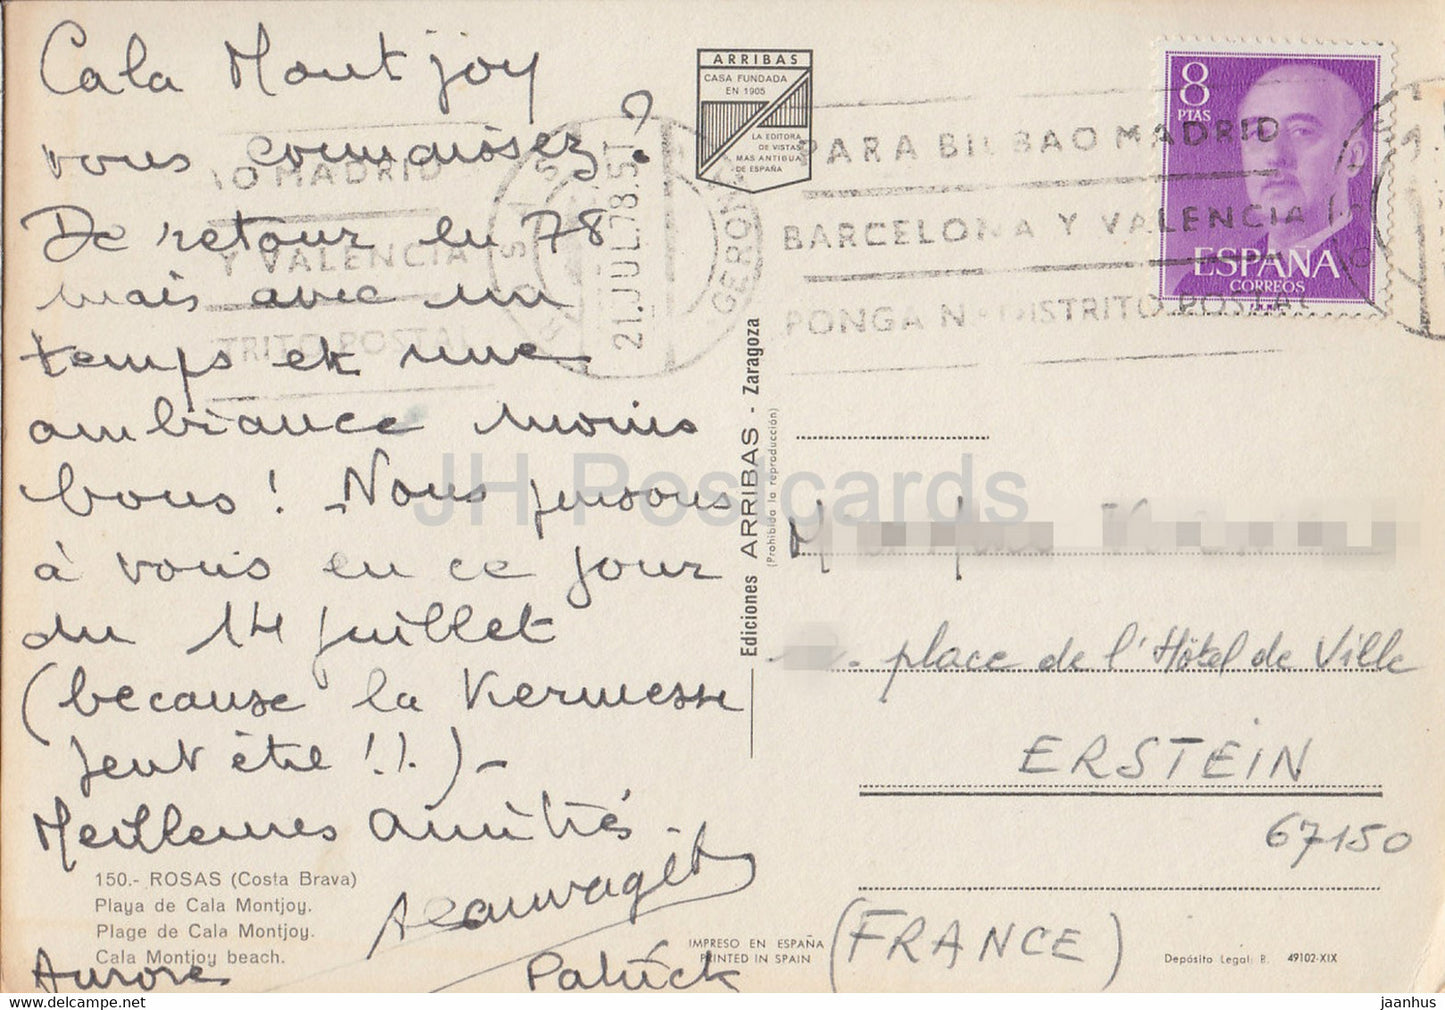 Cala Montjoy
vous connaissez ?
De retour en 78
mais avec un
temps et une
ambiance moins
bons ! - Nous pensons
à vous en ce jour
du 14 juillet
(because la Kermesse
peut être !!.) -
Meilleures Amitiés.
Aurore
Patrick
150.- ROSAS (Costa Brava)
Playa de Cala Montjoy.
Plage de Cala Montjoy.
Cala Montjoy beach.
ARRIBAS
CASA FUNDADA
EN 1905
LA EDITORA
DE VISTAS
MAS ANTIGUA
DE ESPAÑA
Ediciones ARRIBAS - Zaragoza
(Prohibida la reproducción)
IMPRESO EN ESPAÑA
PRINTED IN SPAIN
Depósito Legal: B. 49102-XIX
8
PTAS
ESPAÑA
CORREOS
PARA BILBAO MADRID
BARCELONA Y VALENCIA
PONGA Nº DISTRITO POSTAL
AO MADRID
Y VALENCIA
TRITO POSTAL
21. JUL. 78. 5T
GERONA
place de l'Hôtel de Ville
ERSTEIN
67150
(FRANCE)
JH Postcards
jaanhus.com
jaanhus